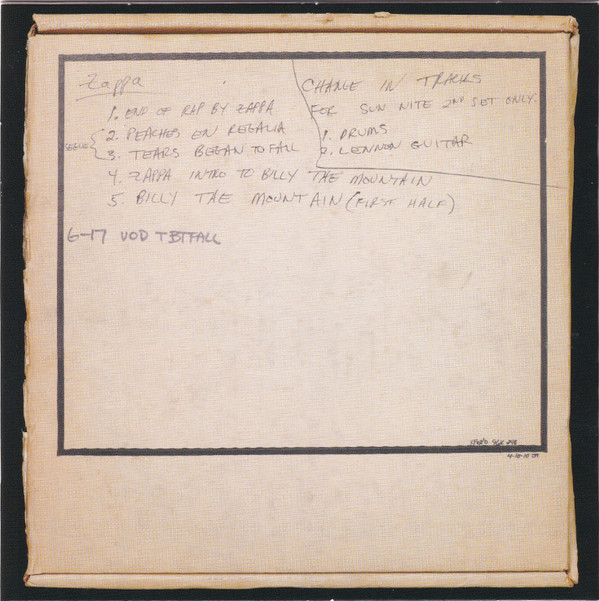 Zappa
1. END OF RAP BY ZAPPA
SEGUE
2. PEACHES EN REGALIA
3. TEARS BEGAN TO FALL
4. ZAPPA INTRO TO BILLY THE MOUNTAIN
5. BILLY THE MOUNTAIN (FIRST HALF)
CHANGE IN TRACKS
FOR SUN NITE 2ND SET ONLY.
1. DRUMS
2. LENNON GUITAR
6-17 VOD TBTFALL